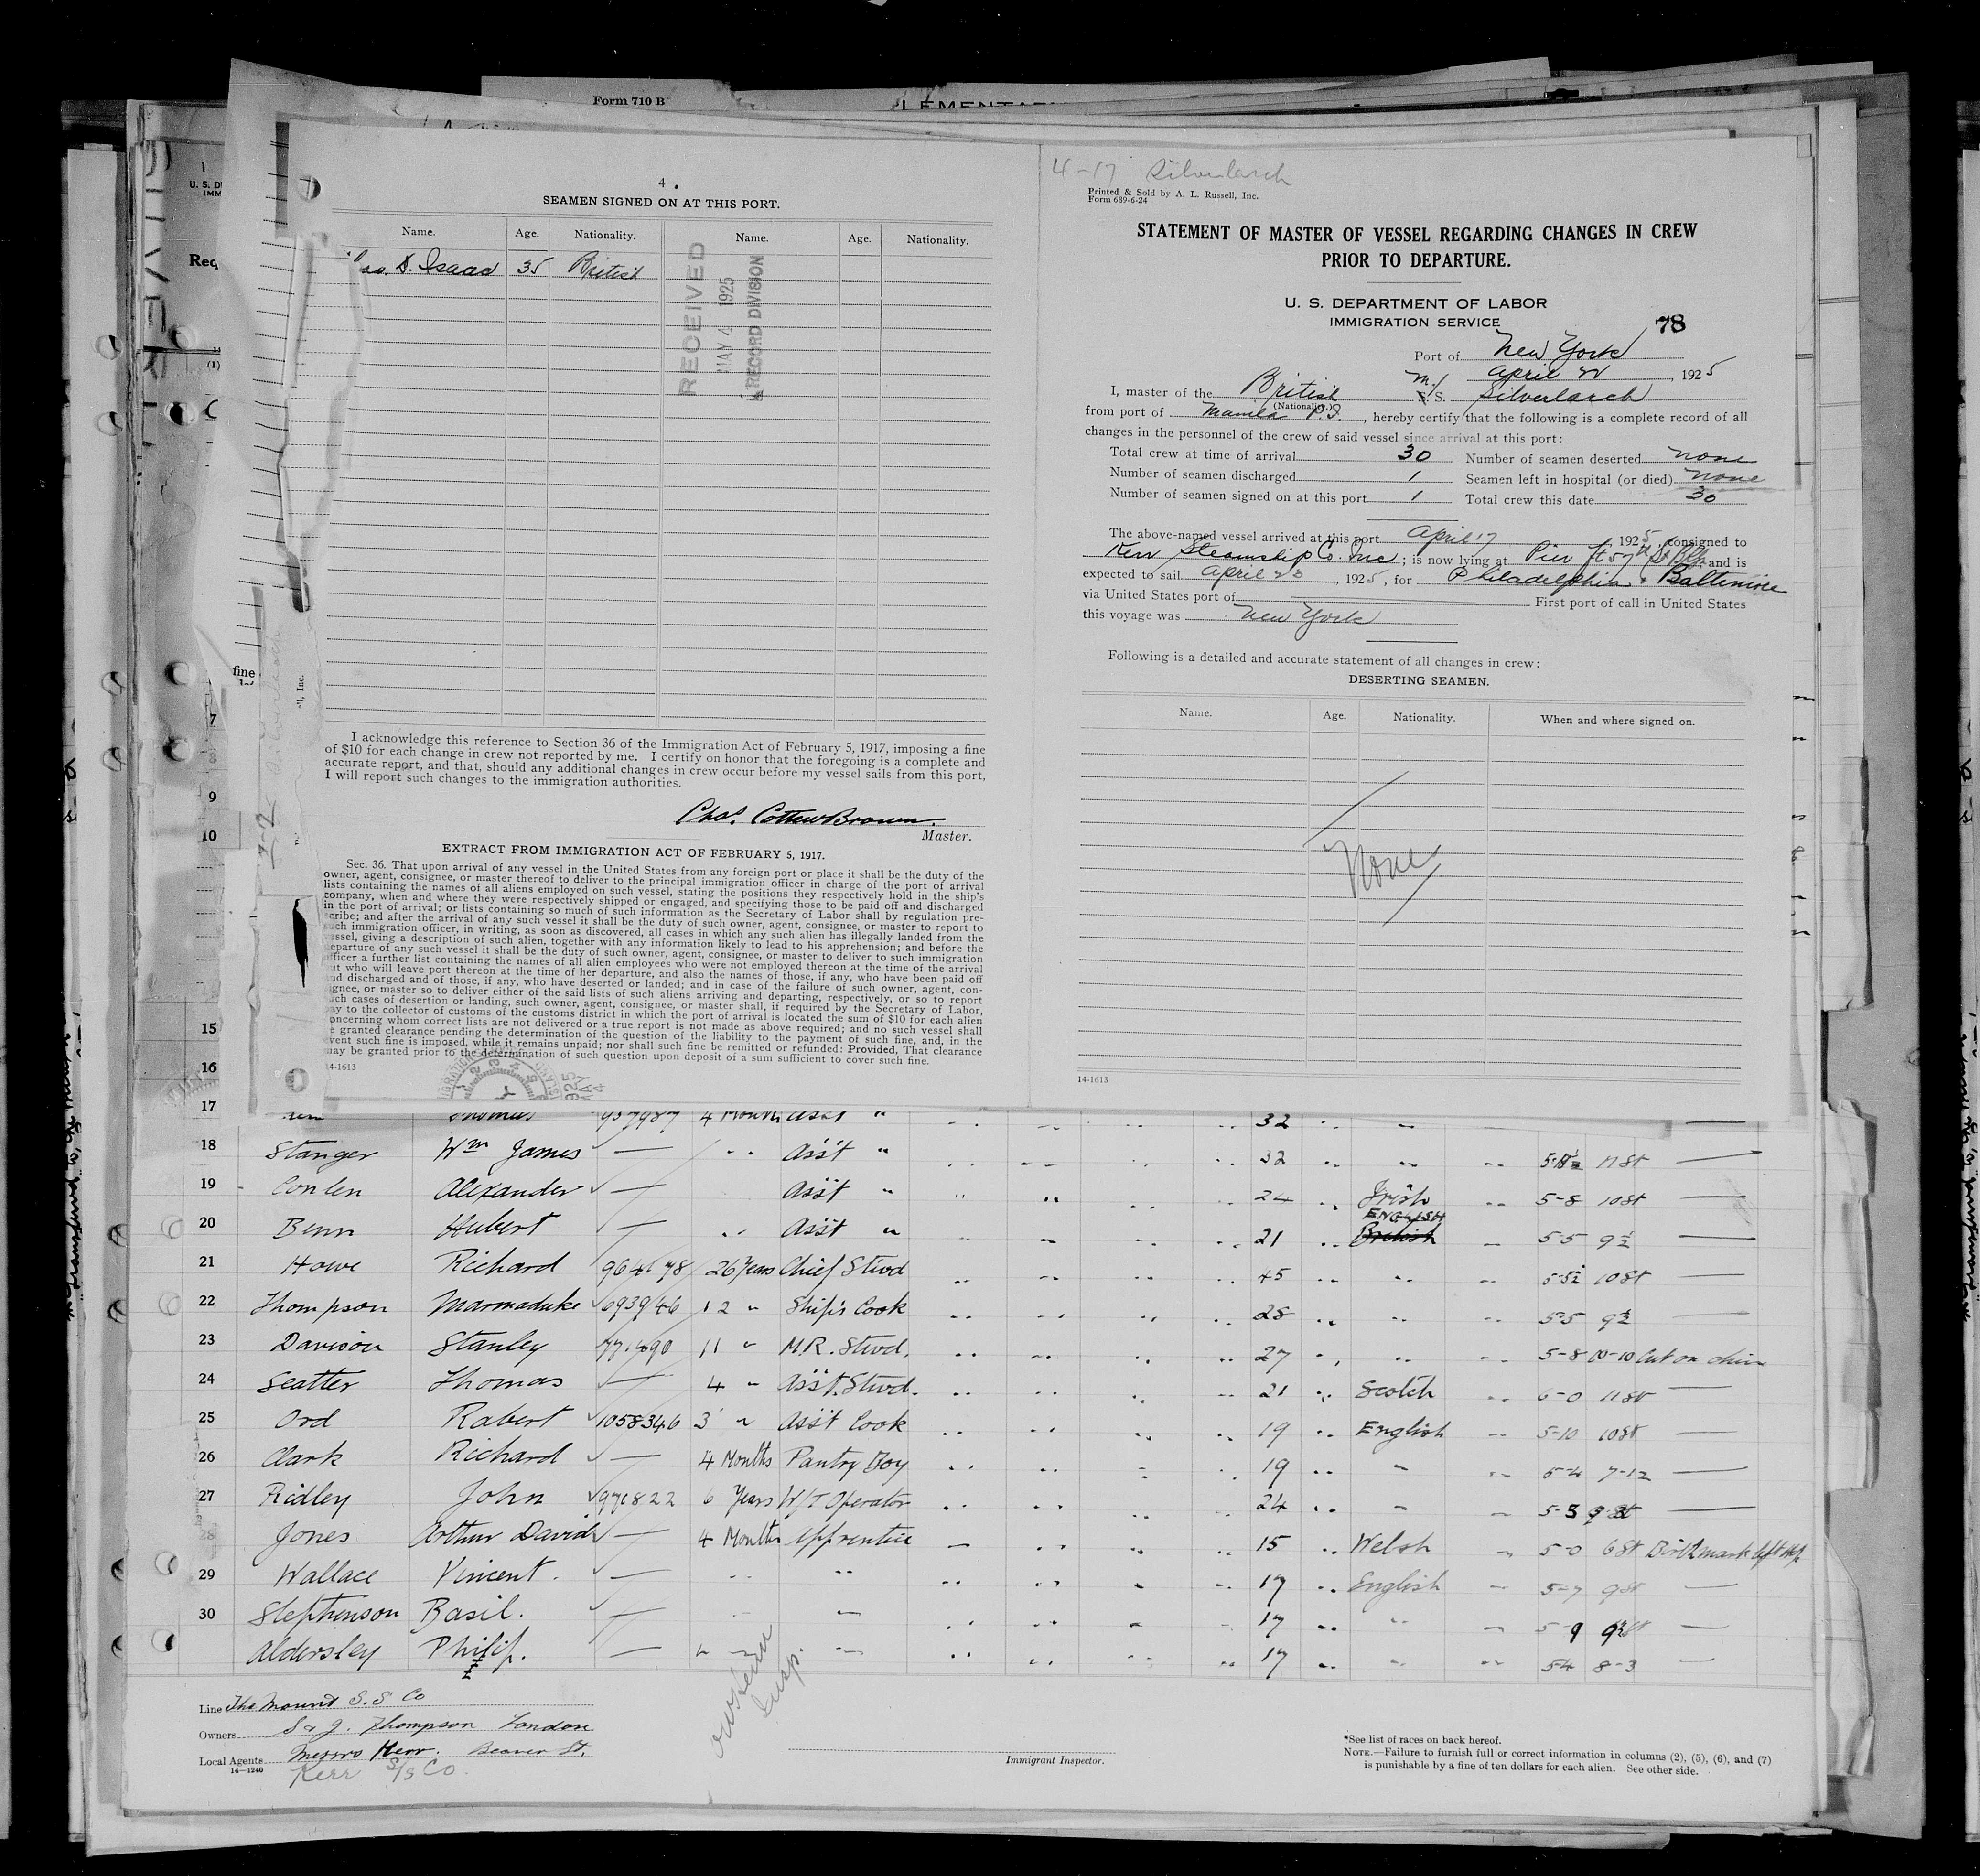 Form 710 B
4.
SEAMEN SIGNED ON AT THIS PORT.
Name. Age. Nationality. Name. Age. Nationality.
S. Isaac 35 British
RECEIVED
MAY 4 1925
RECORD DIVISION
I acknowledge this reference to Section 36 of the Immigration Act of February 5, 1917, imposing a fine
of $10 for each change in crew not reported by me. I certify on honor that the foregoing is a complete and
accurate report, and that, should any additional changes in crew occur before my vessel sails from this port,
I will report such changes to the immigration authorities.
Chas. Brown.
Master.
EXTRACT FROM IMMIGRATION ACT OF FEBRUARY 5, 1917.
Sec. 36. That upon arrival of any vessel in the United States from any foreign port or place it shall be the duty of the
owner, agent, consignee, or master thereof to deliver to the principal immigration officer in charge of the port of arrival
lists containing the names of all aliens employed on such vessel, stating the positions they respectively hold in the ship's
company, when and where they were respectively shipped or engaged, and specifying those to be paid off and discharged
in the port of arrival; or lists containing so much of such information as the Secretary of Labor shall by regulation pre-
scribe; and after the arrival of any such vessel it shall be the duty of such owner, agent, consignee, or master to report to
such immigration officer, in writing, as soon as discovered, all cases in which any such alien has illegally landed from the
vessel, giving a description of such alien, together with any information likely to lead to his apprehension; and before the
eparture of any such vessel it shall be the duty of such owner, agent, consignee, or master to deliver to such immigration
officer a further list containing the names of all alien employees who were not employed thereon at the time of the arrival
ut who will leave port thereon at the time of her departure, and also the names of those, if any, who have been paid off
nd discharged and of those, if any, who have deserted or landed; and in case of the failure of such owner, agent, con-
ignee, or master so to deliver either of the said lists of such aliens arriving and departing, respectively, or so to report
uch cases of desertion or landing, such owner, agent, consignee, or master shall, if required by the Secretary of Labor,
ay to the collector of customs of the customs district in which the port of arrival is located the sum of $10 for each alien
oncerning whom correct lists are not delivered or a true report is not made as above required; and no such vessel shall
e granted clearance pending the determination of the question of the liability to the payment of such fine, and, in the
vent such fine is imposed, while it remains unpaid; nor shall such fine be remitted or refunded: Provided, That clearance
may be granted prior to the determination of such question upon deposit of a sum sufficient to cover such fine.
14-1613
4-17 Silverlarch
Printed & Sold by A. L. Russell, Inc.
Form 689-6-24
STATEMENT OF MASTER OF VESSEL REGARDING CHANGES IN CREW
PRIOR TO DEPARTURE.
U. S. DEPARTMENT OF LABOR
IMMIGRATION SERVICE
78
Port of New York
April 22, 1925
I, master of the British M/ S. S. Silverlarch
(Nationality.)
from port of Manila P.I., hereby certify that the following is a complete record of all
changes in the personnel of the crew of said vessel since arrival at this port:
Total crew at time of arrival 30 Number of seamen deserted none
Number of seamen discharged 1 Seamen left in hospital (or died) none
Number of seamen signed on at this port 1 Total crew this date 30
The above-named vessel arrived at this port April 17 1925, consigned to
Kerr Steamship Co. Inc; is now lying at Pier ft 57th St Bklyn and is
expected to sail April 23, 1925, for Philadelphia & Baltimore
via United States port of First port of call in United States
this voyage was New York
Following is a detailed and accurate statement of all changes in crew:
DESERTING SEAMEN.
Name. Age. Nationality. When and where signed on.
None
14-1613
17 Thomas 937987 4 Months Asst " 32
18 Stanger Wm James — Ass't " 32 11 St
19 Conlen Alexander — Ass't " 24 Irish 5-8 10 St
20 Benn Hubert — Ass't " 21 ENGLISH British 5-5 9½
21 Howe Richard 964178 26 Years Chief Stwd 45 5-5½ 10 St
22 Thompson Marmaduke 693946 12 " Ship's Cook 28 5-5 9½
23 Davison Stanley 771490 11 " M.R. Stwd. 27 5-8 10-10 Cut on chin
24 Seatter Thomas — 4 " Ass't. Stwd. 21 Scotch 6-0 11 St
25 Ord Robert 1058346 3 " Ass't Cook 19 English 5-10 10 St
26 Clark Richard — 4 Months Pantry Boy 19 " 5-4 7-12
27 Ridley John 971822 6 Years W/T Operator 24 " 5-5
28 Jones Arthur David — 4 Months Apprentice 15 Welsh 5-0 6 St Birthmark left hip
29 Wallace Vincent. — 17 English 5-7 9 St
30 Stephenson Basil. — 17 5-9
Aldersley Philip. — 17 5-4 8-3
Line The Mount S.S Co
Owners S & J. Thompson London
Local Agents Messrs Kerr. Beaver St.
14-1240
Kerr S/S Co.
Insp.
Immigrant Inspector.
*See list of races on back hereof.
NOTE.—Failure to furnish full or correct information in columns (2), (5), (6), and (7)
is punishable by a fine of ten dollars for each alien. See other side.